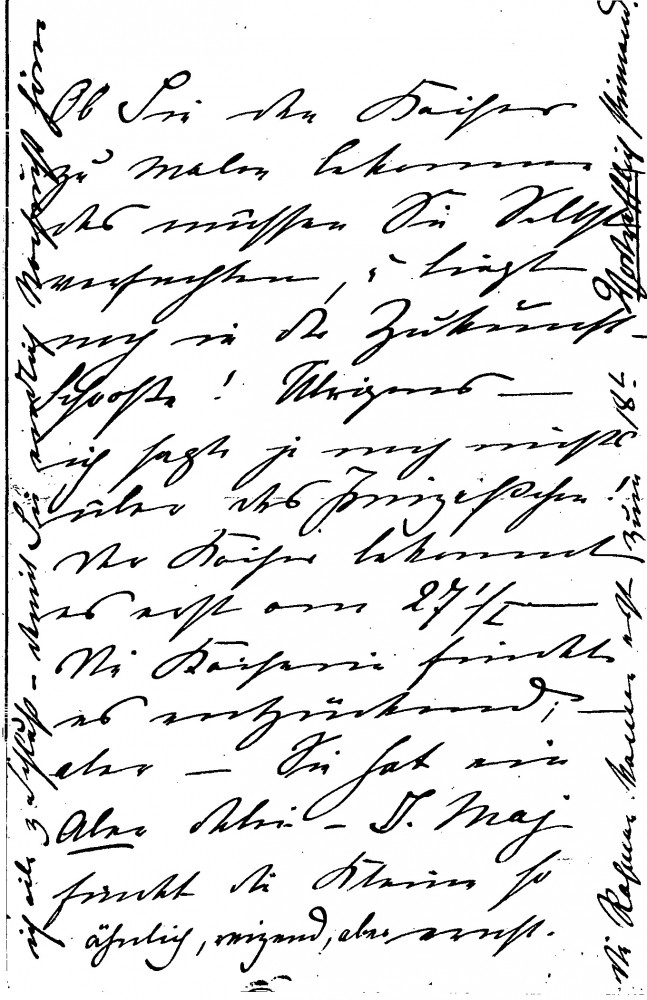 Ob Sie den Kaiser
zu malen bekommen
das müssen Sie Selbst
verfechten, es liegt
noch in der Zukunft
Schooße! Übrigens —
ich sagte ja noch nichts
über das Prinzeßchen!
Der Kaiser bekommt
es erst am 27/I —
Die Kaiserin findet
es entzückend; —
aber — Sie hat ein
Aber dabei — I. Maj
findet die Kleine so
ähnlich, reizend, aber ernst.
ich eile z. Schluß — damit Sie endlich Nachricht haben
Die Rahmen kamen erst zum 18t.
Vortrefflich Niemand.